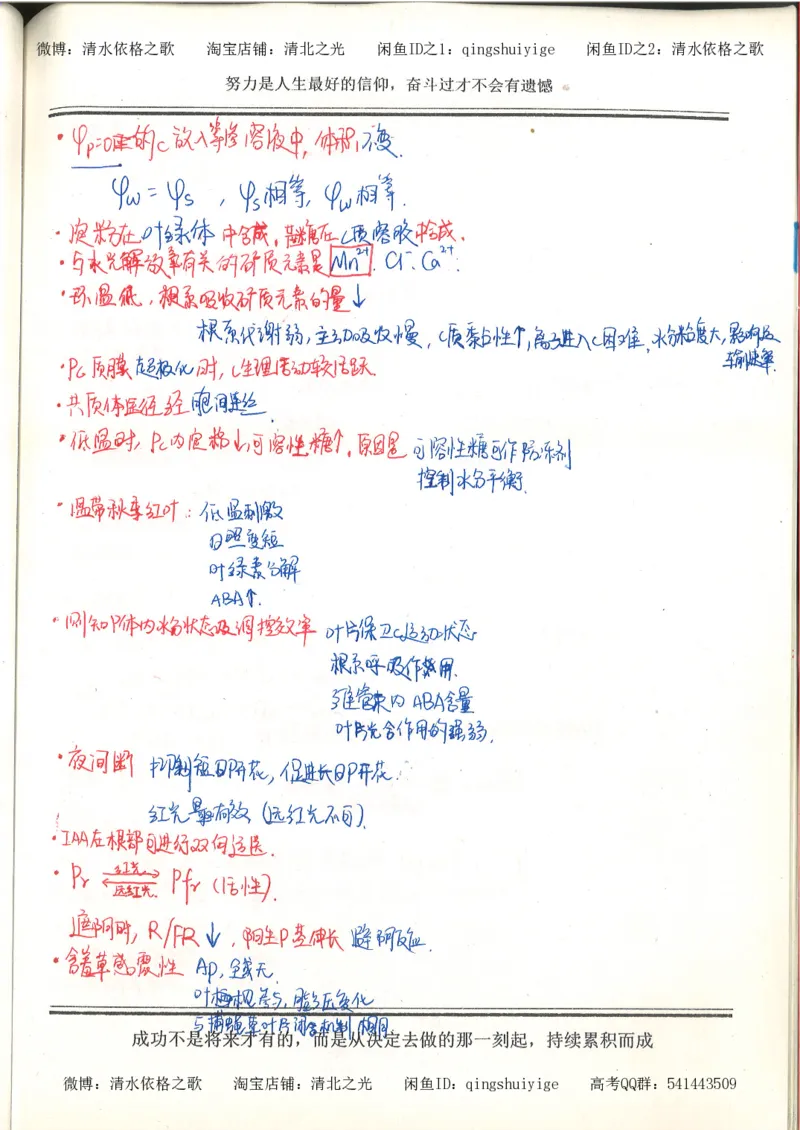 微博：清水依格之歌 淘宝店铺：清北之光 闲鱼ID之1：qingshuiyige 闲鱼ID之2：清水依格之歌
努力是人生最好的信仰，奋斗过才不会有遗憾
·φp=0 的c放入等摩溶液中，体积，不变．
φw=φs ，φs相等，φw相等．
·淀粉在叶绿体中合成，蔗糖在c质溶胶中合成．
·与水光解放氧有关的矿质元素是Mn²⁺．Cl⁻．Ca²⁺．
·环温低，根系吸收矿质元素的量↓
根系代谢弱，主动吸收慢，c质黏性↑，离子进入c困难，水分粘度大，影响及
输速率．
·Pc质膜超极化时，c生理活动较活跃．
·共质体途径经胞间连丝．
·低温时，Pc内淀粉↓可溶性糖↑，原因是 可溶性糖可作防冻剂
控制水分平衡．
·温带秋季红叶：低温刺激
日照变短
叶绿素分解
ABA↑．
·测知P体内水分状态及调控效率 叶片保卫c运动状态
根系呼吸作用．
维管束内ABA含量
叶片光合作用的强弱．
·夜间断 抑制短日P开花，促进长日P开花．
红光最有效（远红光不可）．
·IAA在根部可进行双向运医．
·Pr ⇌ Pfr（活性）．
红光
远红光
遮阴时，R/FR↓，阳生P茎伸长 避阴反应．
·含羞草感震性 Ap，全或无．
叶褥相参与，膨压变化
与捕蝇草叶片闭合机制相同
成功不是将来才有的，而是从决定去做的那一刻起，持续累积而成
微博：清水依格之歌 淘宝店铺：清北之光 闲鱼ID：qingshuiyige 高考QQ群：541443509